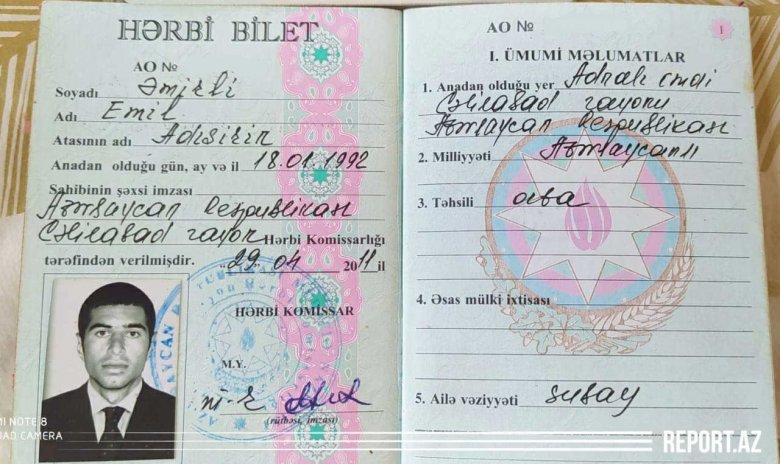 HƏRBİ BİLET
AO №
Soyadı Əmirli
Adı Emil
Atasının adı
Anadan olduğu gün, ay və il 18.01.1992
Sahibinin şəxsi imzası
Azərbaycan Respublikası
Cəlilabad rayon Hərbi Komissarlığı
tərəfindən verilmişdir. 29 04 2011 il
HƏRBİ KOMİSSAR
M.Y.
(rütbəsi, imzası)
MI NOTE 8
UAD CAMERA
AO №
1
I. ÜMUMİ MƏLUMATLAR
1. Anadan olduğu yer
Cəlilabad rayonu
Azərbaycan Respublikası
2. Milliyyəti Azərbaycanlı
3. Təhsili orta
4. Əsas mülki ixtisası
5. Ailə vəziyyəti subay
REPORT.AZ